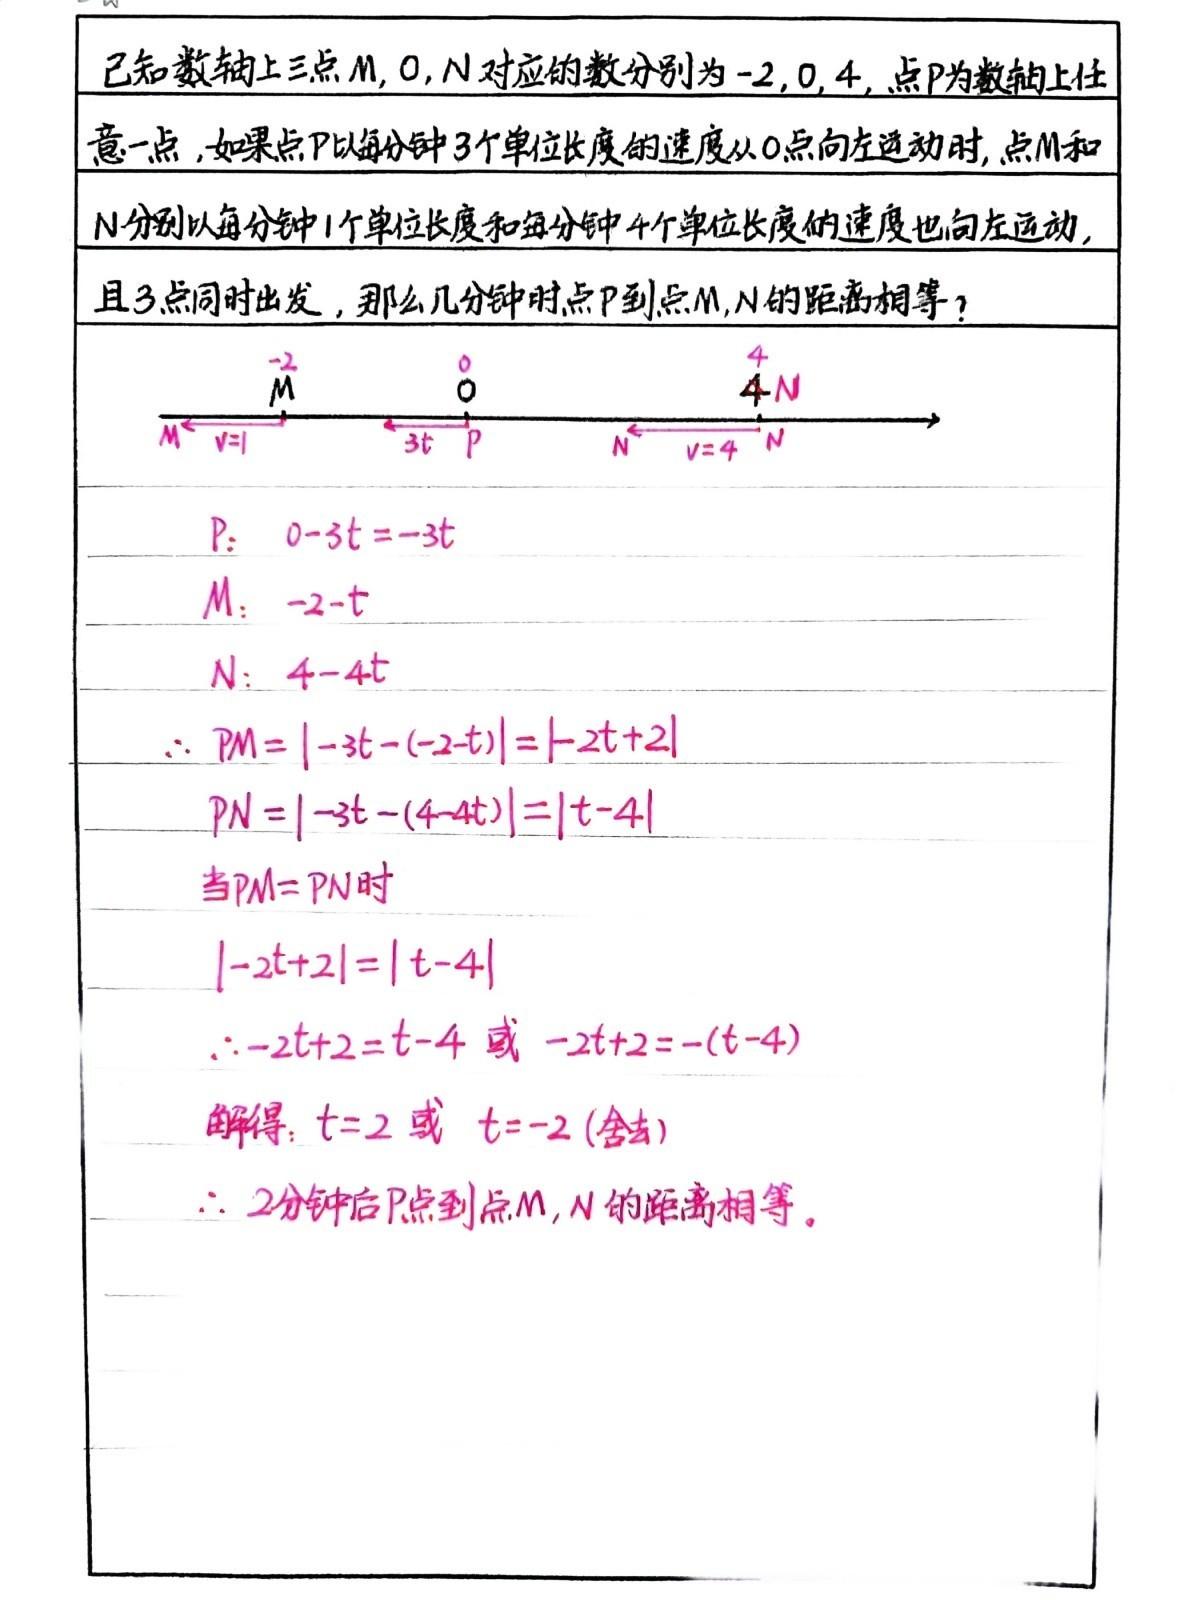 已知数轴上三点M,O,N对应的数分别为-2,0,4,点P为数轴上任
意一点,如果点P以每分钟3个单位长度的速度从O点向左运动时,点M和
N分别以每分钟1个单位长度和每分钟4个单位长度的速度也向左运动,
且3点同时出发,那么几分钟时点P到点M,N的距离相等?
-2 0 4
M O 4 N
M v=1 3t P N v=4 N
P: 0-3t=-3t
M: -2-t
N: 4-4t
∴ PM=|-3t-(-2-t)|=|-2t+2|
PN=|-3t-(4-4t)|=|t-4|
当PM=PN时
|-2t+2|=|t-4|
∴-2t+2=t-4 或 -2t+2=-(t-4)
解得: t=2 或 t=-2 (舍去)
∴ 2分钟后P点到点M,N的距离相等。